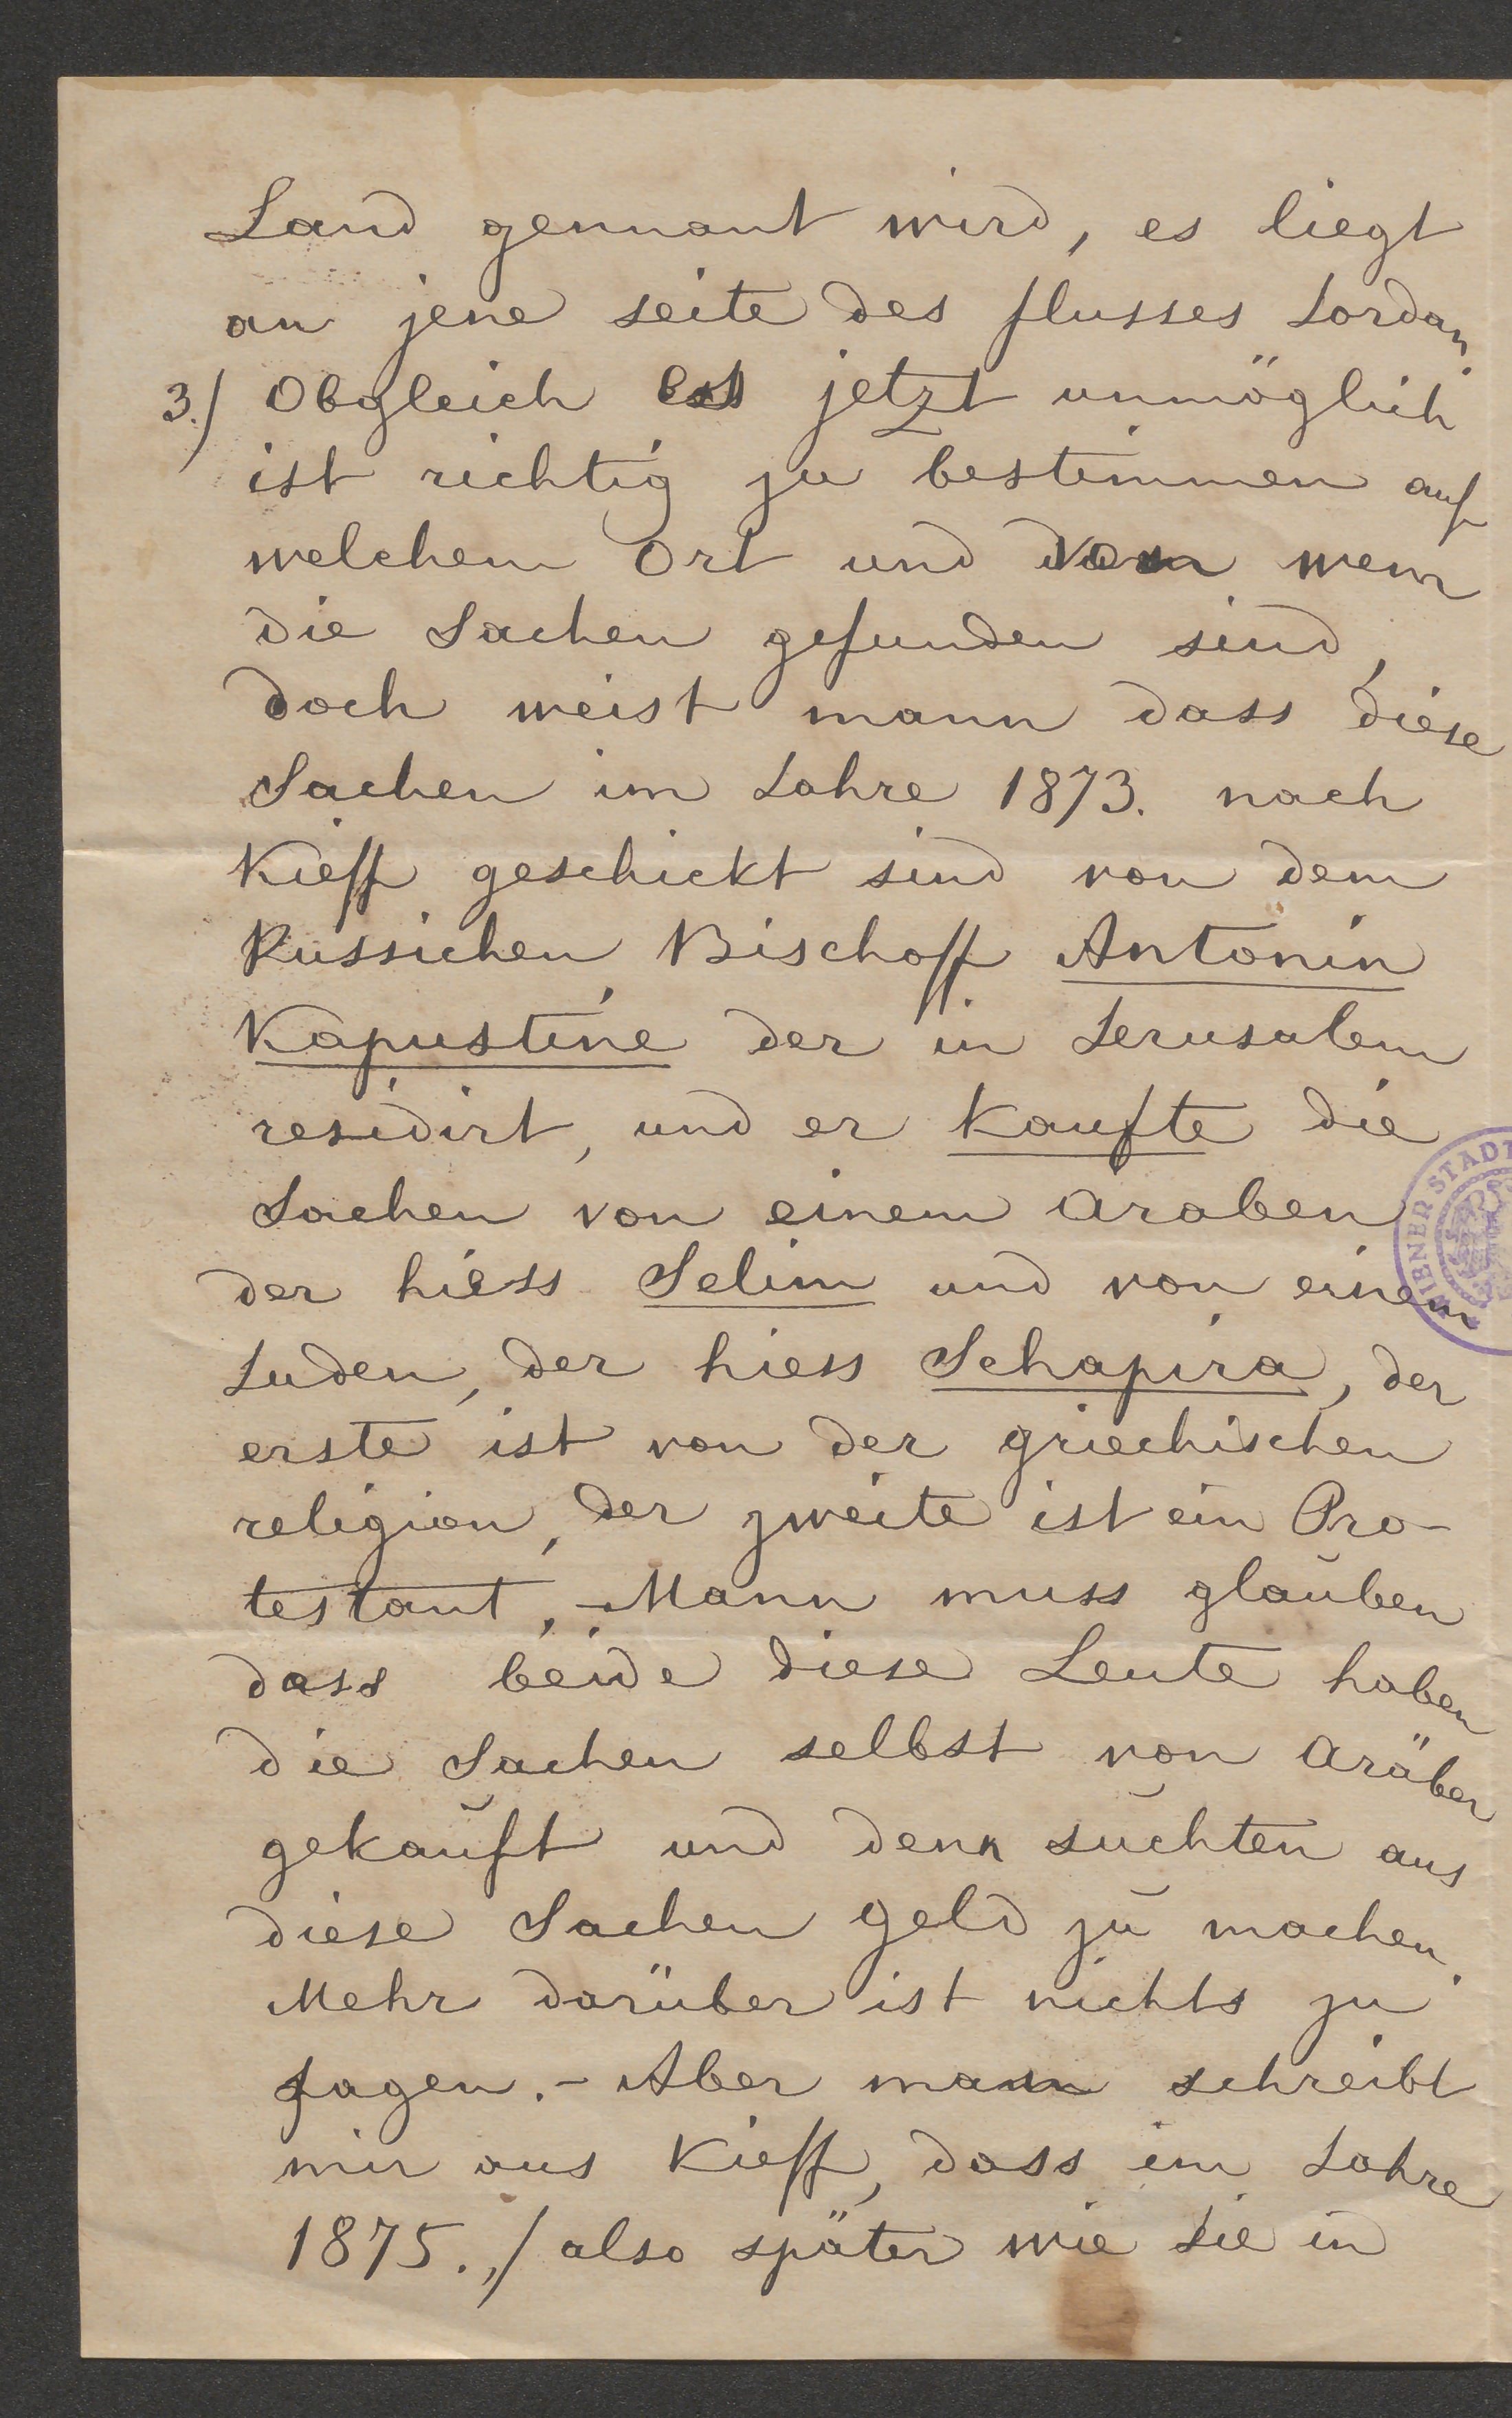 Land gennant wird, es liegt
an jene seite des flusses Jordan.
3./ Obgleich es jetzt unmöglich
ist richtig zu bestimmen auf
welchem Ort und von wem
die Sachen gefunden sind,
doch weist mann dass diese
Sachen im Jahre 1873. nach
Kieff geschickt sind von dem
Russichen Bischoff Antonin
Kapustine der in Jerusalem
residirt, und er kaufte die
Sachen von einem Araben
der hiess Selim und von einem
Juden, der hiess Schapira, der
erste ist von der griechischen
religion, der zweite ist ein Pro-
testant, - Mann muss glauben
dass beide diese Leute haben
die Sachen selbst von Aräber
gekauft und denn suchten aus
diese Sachen geld zu machen.
Mehr darüber ist nichts zu
sagen. - Aber mann schreibt
mir aus Kieff, dass im Jahre
1875., / also später wie sie in
WIENER STADT